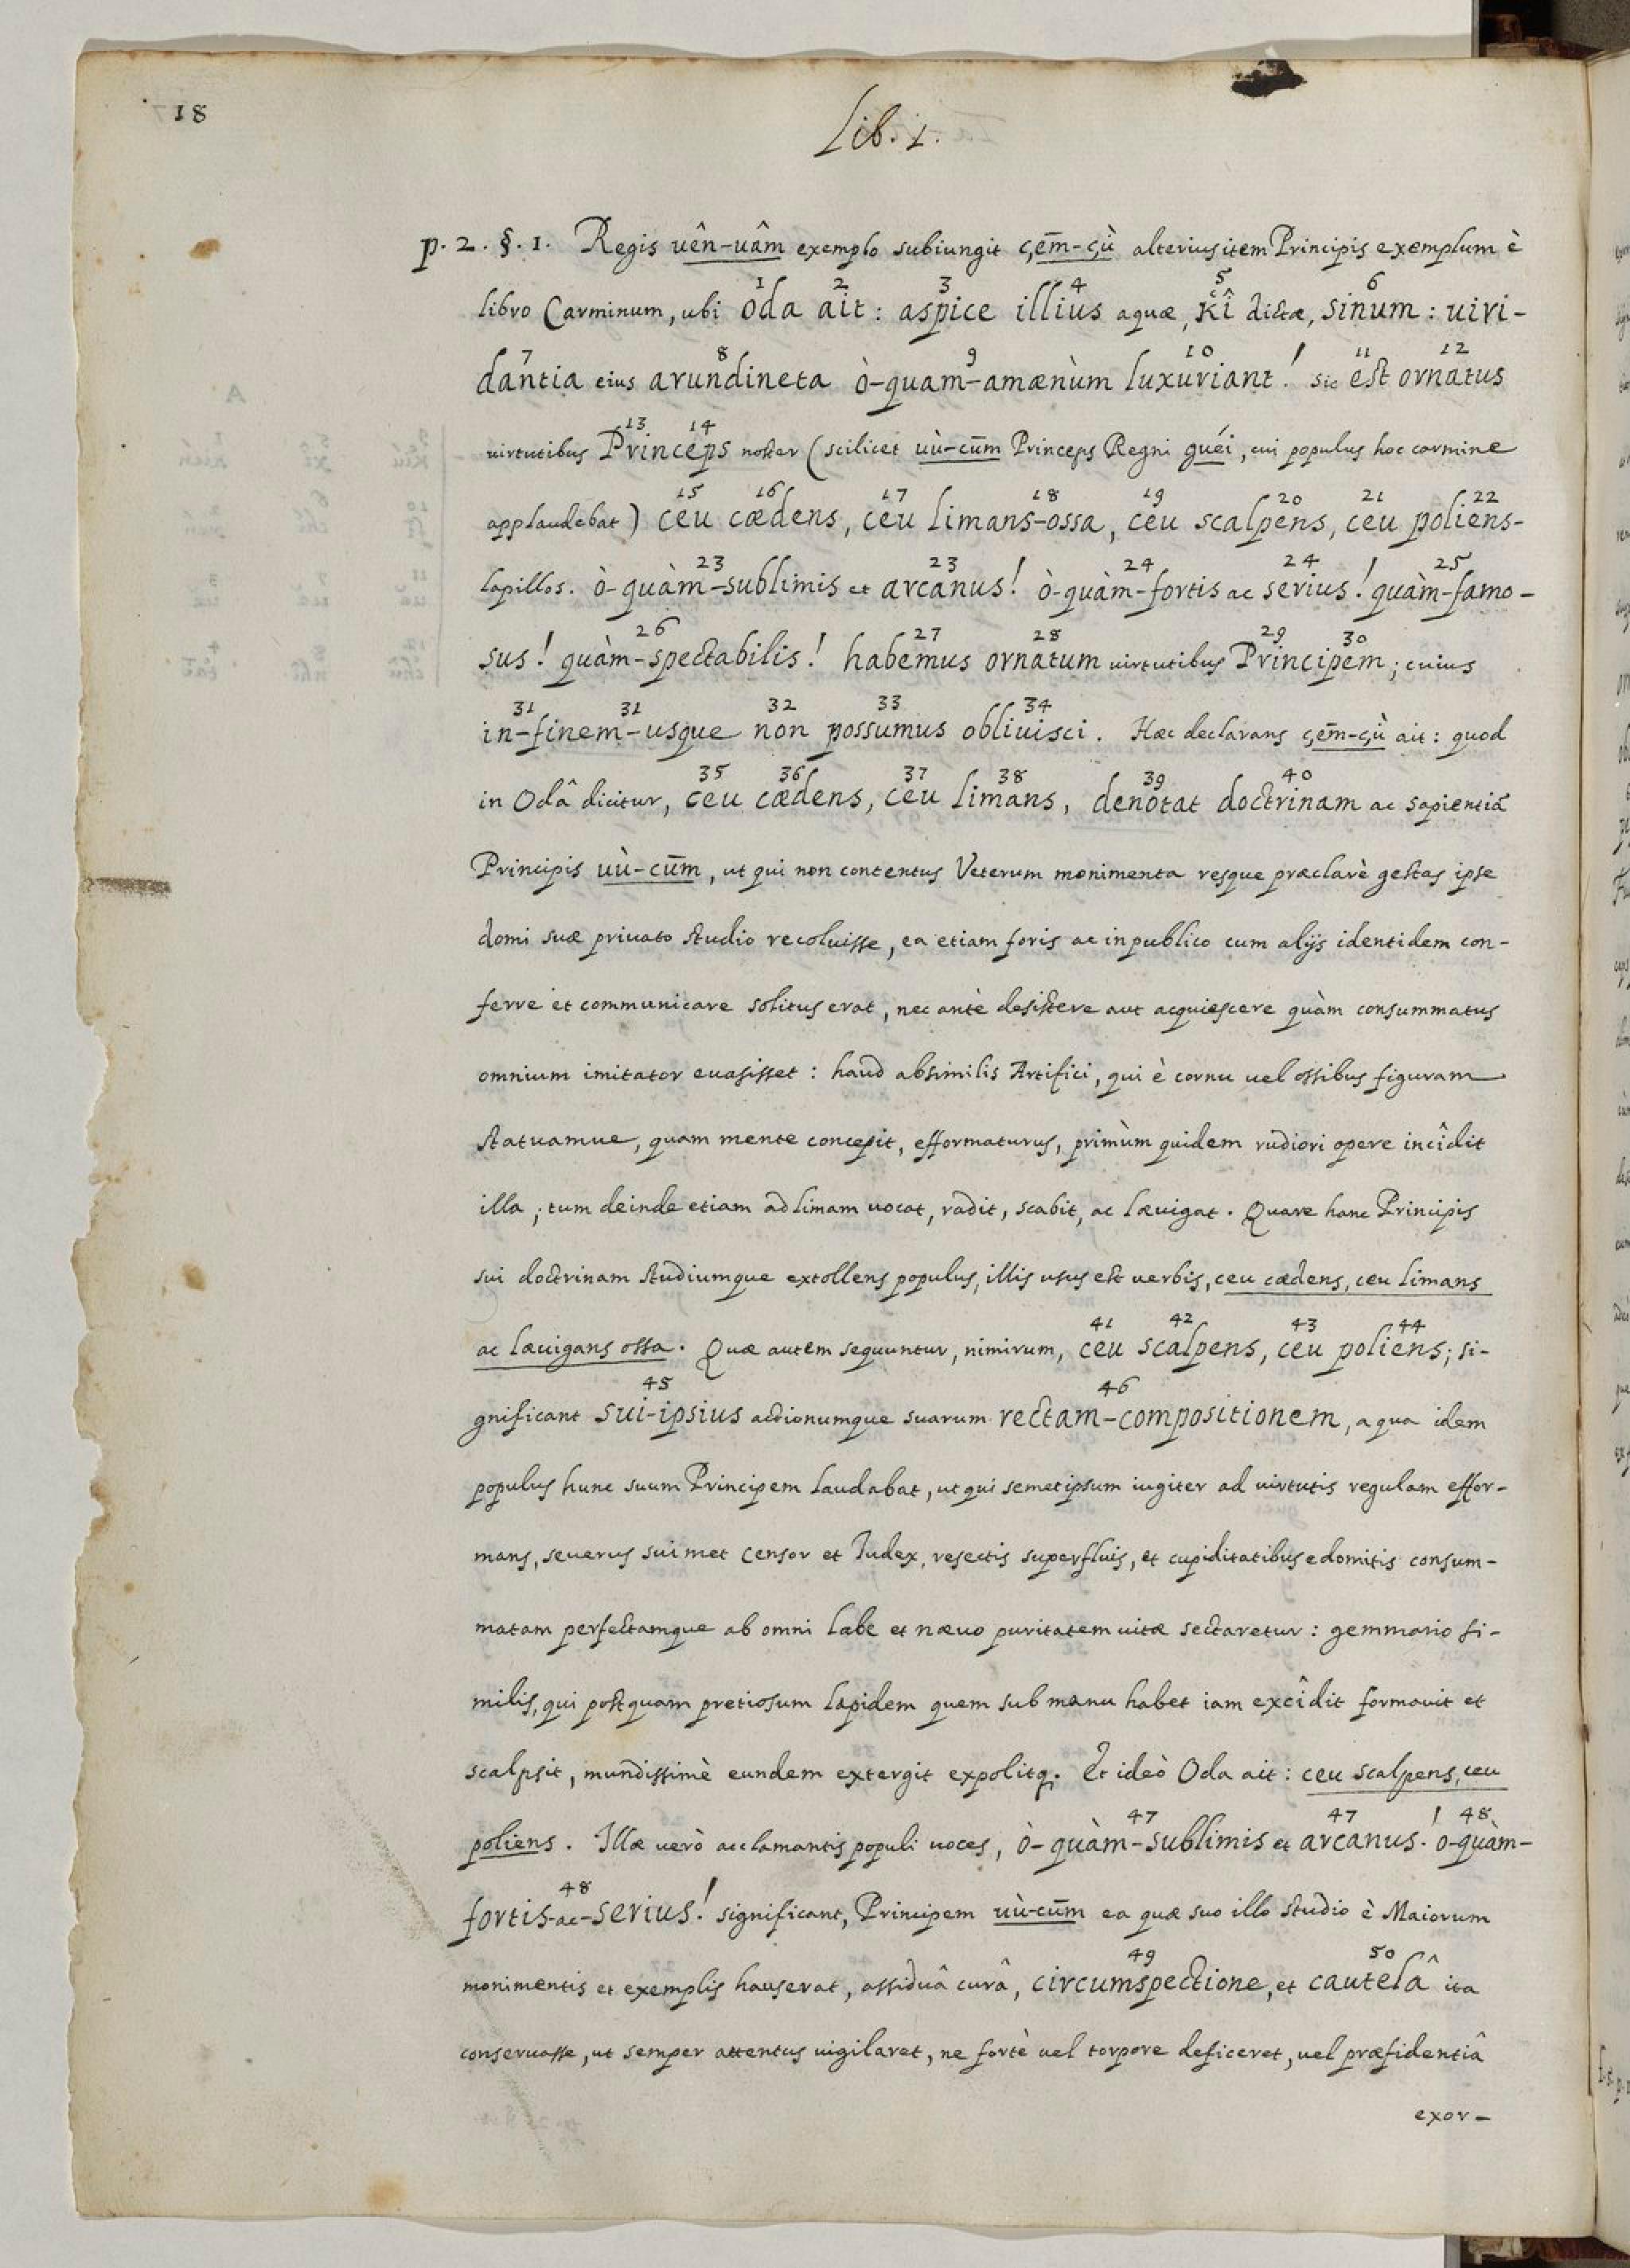 18
Lib. 1.
p. 2. §. 1. Regis uên-uâm exemplo subiungit çēm-çù alterius item Principis exemplum è
1 2 3 4 5 6
libro Carminum, ubi oda ait: aspice illius aquæ, kî dictæ, sinum: uiri-
7 8 9 10 11 12
dantia eius arundineta ò-quam-amænùm luxuriant! sic est ornatus
13 14
uirtutibus Princeps noster (scilicet uù-cūm Princeps Regni guéi, cui populus hoc carmine
15 16 17 18 19 20 21 22
applaudebat) ceu cædens, ceu limans-ossa, ceu scalpens, ceu poliens-
23 23 24 24 25
lapillos. ò-quàm-sublimis et arcanus! ò-quàm-fortis ac serius! quàm-famo-
26 27 28 29 30
sus! quàm-spectabilis! habemus ornatum uirtutibus Principem; cuius
31 31 32 33 34
in-finem-usque non possumus obliuisci. Hæc declarans çēm-çù ait: quod
35 36 37 38 39 40
in Odâ dicitur, ceu cædens, ceu limans, denotat doctrinam ac sapientiā
Principis uù-cūm, ut qui non contentus Veterum monimenta resque præclarè gestas ipse
domi suæ priuato studio recoluisse, ea etiam foris ac in publico cum alijs identidem con-
ferre et communicare solitus erat, nec antè desistere aut acquiescere quàm consummatus
omnium imitator euasisset: haud absimilis Artifici, qui è cornu uel ossibus figuram
statuamue, quam mente concepit, efformaturus, primùm quidem rudiori opere incîdit
illa; tum deinde etiam ad limam uocat, radit, scabit, ac læuigat. Quare hanc Principis
sui doctrinam studiumque extollens populus, illis usus est uerbis, ceu cædens, ceu limans
41 42 43 44
ac læuigans ossa. Quæ autem sequuntur, nimirum, ceu scalpens, ceu poliens; si-
45 46
gnificant sui-ipsius actionumque suarum rectam-compositionem, a qua idem
populus hunc suum Principem laudabat, ut qui semetipsum iugiter ad uirtutis regulam effor-
mans, seuerus suimet censor et Iudex, resectis superfluis, et cupiditatibus edomitis consum-
matam perfectamque ab omni labe et næuo puritatem uitæ sectaretur: gemmario si-
milis, qui postquam pretiosum lapidem quem sub manu habet iam excîdit formauit et
scalpsit, mundissimè eundem extergit expolitq. Et ideò Oda ait: ceu scalpens, ceu
47 47 48
poliens. Illæ uerò acclamantis populi uoces, ò-quàm-sublimis et arcanus! o-quàm-
48
fortis-ac-serius! significant, Principem uù-cūm ea quæ suo illo studio è Maiorum
49 50
monimentis et exemplis hauserat, assiduâ curâ, circumspectione, et cautelâ ita
conseruasse, ut semper attentus uigilaret, ne fortè uel torpore deficeret, uel præfidentiâ
exor-